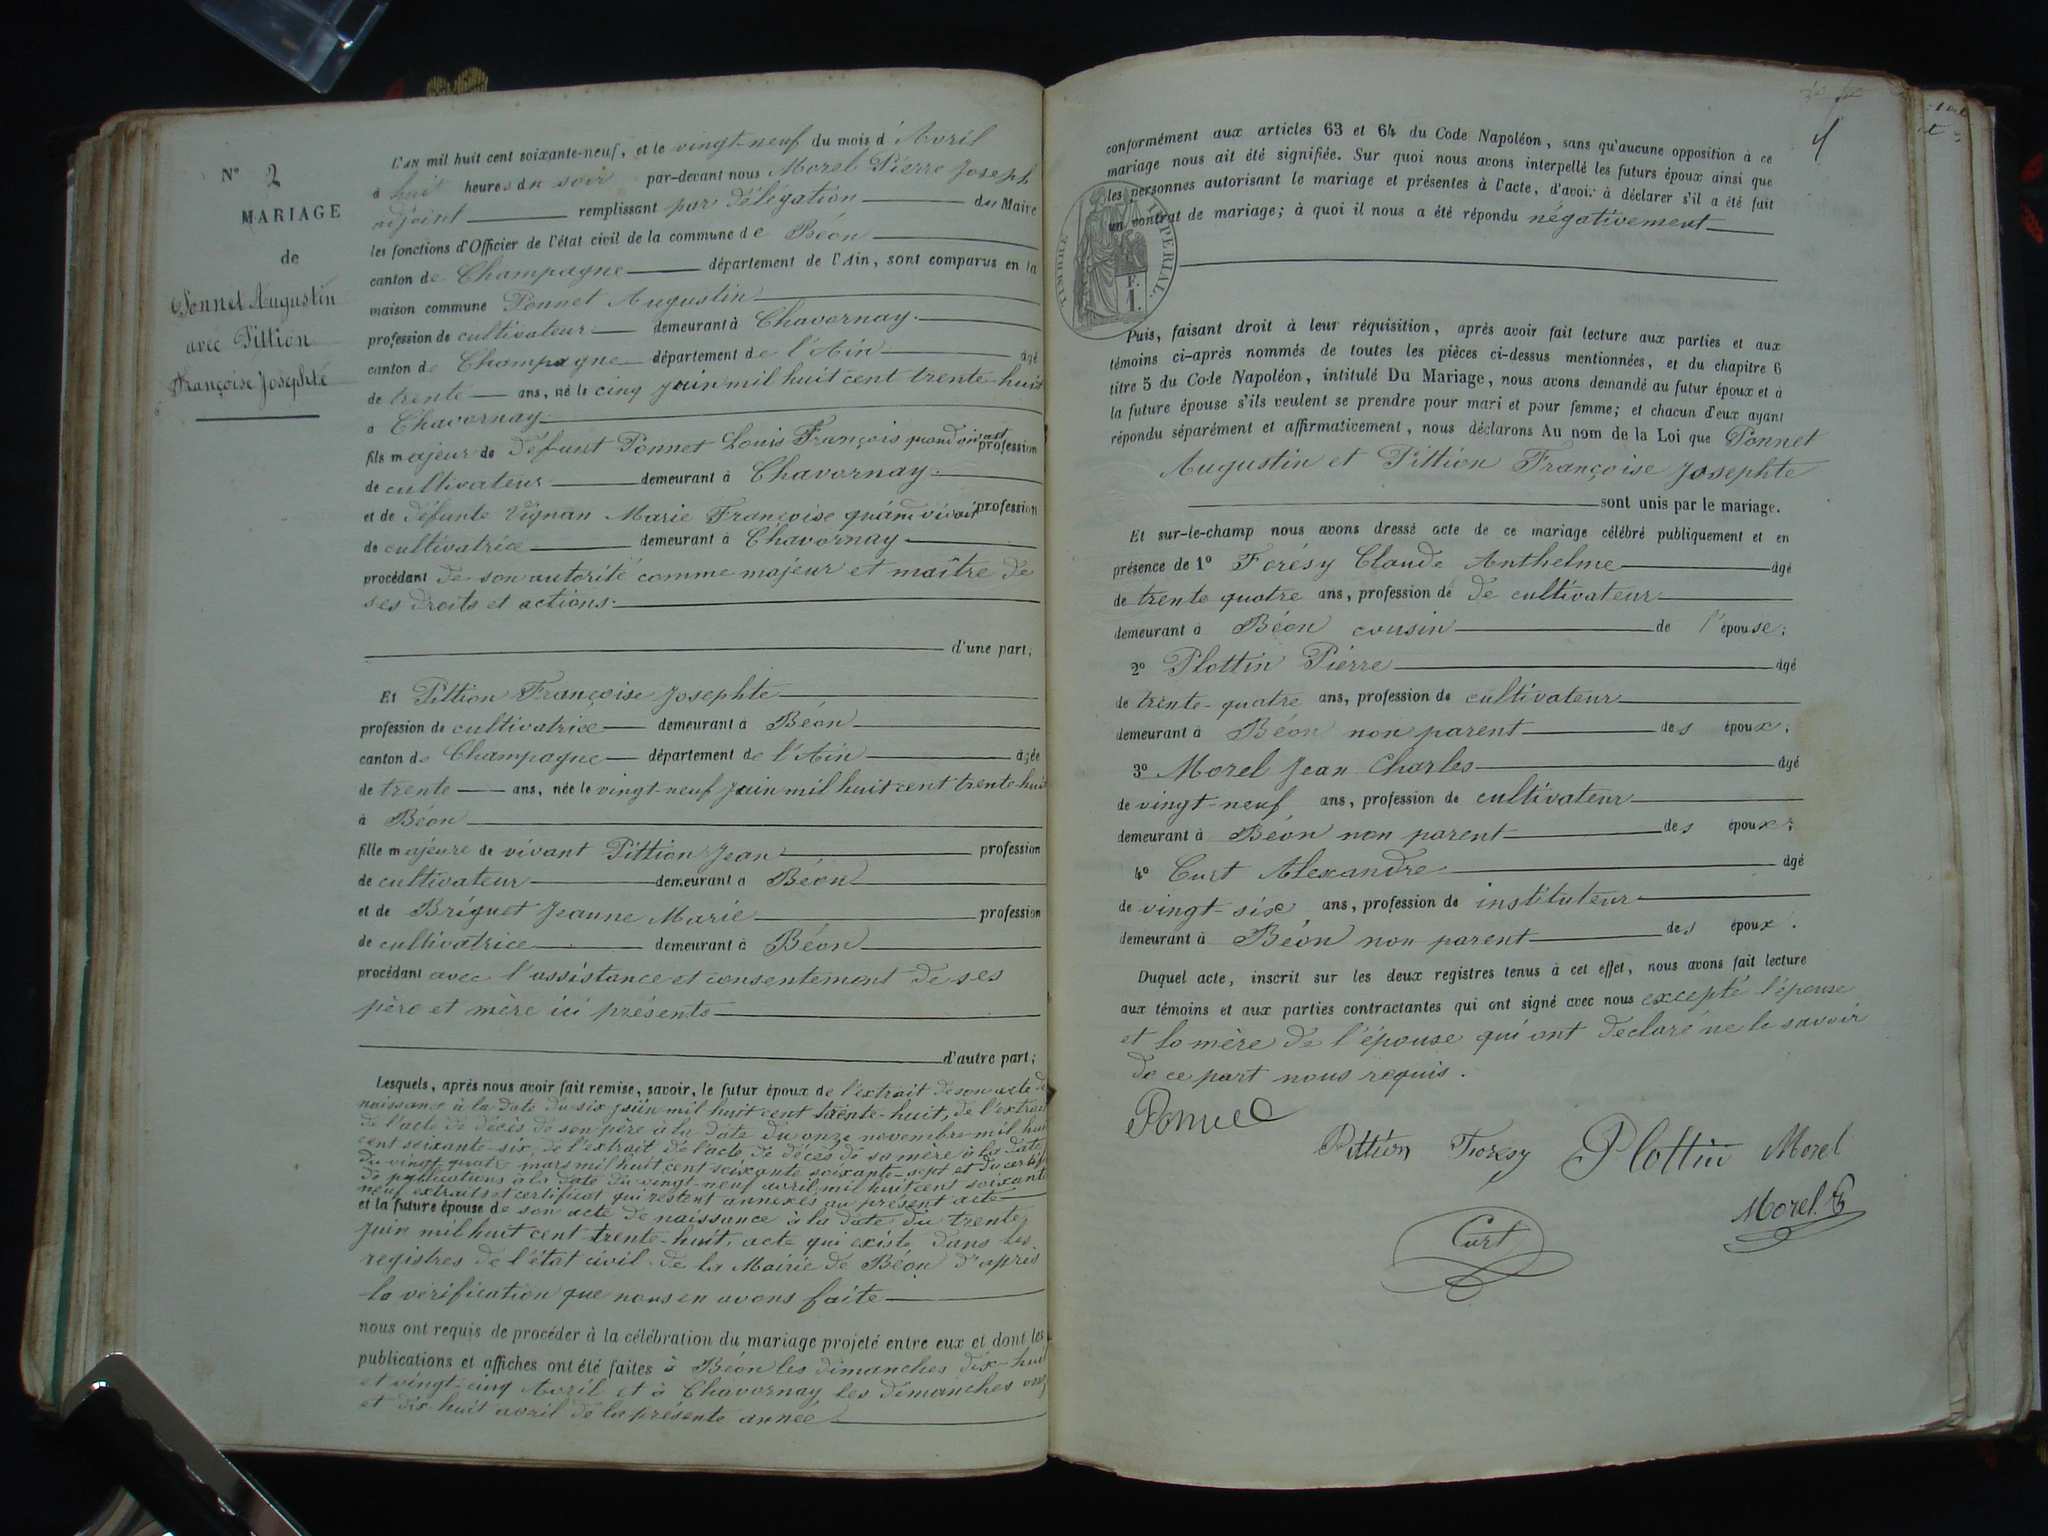 N° 2
MARIAGE
de
Ponnet Augustin
avec Pittion
Françoise Josephte
L'AN mil huit cent soixante-neuf, et le vingt-neuf du mois d'Avril
à huit heures du soir par-devant nous Morel Pierre Joseph
adjoint remplissant par délégation du Maire
les fonctions d'Officier de l'état civil de la commune de Béon
canton de Champagne département de l'Ain, sont comparus en la
maison commune Ponnet Augustin
profession de cultivateur demeurant à Chavornay
canton de Champagne département de l'Ain âgé
de trente ans, né le cinq juin mil huit cent trente-huit
à Chavornay
fils majeur de défunt Ponnet Louis François quand vivait profession
de cultivateur demeurant à Chavornay
et de défunte Vignan Marie Françoise quand vivait profession
de cultivatrice demeurant à Chavornay
procédant de son autorité comme majeur et maître de
ses droits et actions.
d'une part;
Et Pittion Françoise Josephte
profession de cultivatrice demeurant à Béon
canton de Champagne département de l'Ain âgée
de trente ans, née le vingt-neuf juin mil huit cent trente-huit
à Béon
fille majeure de vivant Pittion Jean profession
de cultivateur demeurant à Béon
et de Briquet Jeanne Marie profession
de cultivatrice demeurant à Béon
procédant avec l'assistance et consentement de ses
père et mère ici présents
d'autre part;
Lesquels, après nous avoir fait remise, savoir, le futur époux de l'extrait de son acte de
naissance à la date du six juin mil huit cent trente-huit, de l'extrait
de l'acte de décès de son père à la date du onze novembre mil huit
cent soixante-six, de l'extrait de l'acte de décès de sa mère à la date
du vingt quatre mars mil huit cent soixante soixante-sept et du certificat
de publications à la date du vingt-neuf avril mil huit cent soixante
neuf extraits et certificat qui restent annexés au présent acte
et la future épouse de son acte de naissance à la date du trente
juin mil huit cent trente-huit, acte qui existe dans les
registres de l'état civil de la Mairie de Béon d'après
la vérification que nous en avons faite
nous ont requis de procéder à la célébration du mariage projeté entre eux et dont les
publications et affiches ont été faites à Béon les dimanches dix-huit
et vingt-cinq Avril et à Chavornay les dimanches onze
et dix huit avril de la présente année
conformément aux articles 63 et 64 du Code Napoléon, sans qu'aucune opposition à ce
mariage nous ait été signifiée. Sur quoi nous avons interpellé les futurs époux ainsi que
les personnes autorisant le mariage et présentes à l'acte, d'avoir à déclarer s'il a été fait
un contrat de mariage; à quoi il nous a été répondu négativement
TIMBRE IMPERIAL.
F.
1.
Puis, faisant droit à leur réquisition, après avoir fait lecture aux parties et aux
témoins ci-après nommés de toutes les pièces ci-dessus mentionnées, et du chapitre 6
titre 5 du Code Napoléon, intitulé Du Mariage, nous avons demandé au futur époux et à
la future épouse s'ils veulent se prendre pour mari et pour femme; et chacun d'eux ayant
répondu séparément et affirmativement, nous déclarons Au nom de la Loi que Ponnet
Augustin et Pittion Françoise Josephte
sont unis par le mariage.
Et sur-le-champ nous avons dressé acte de ce mariage célébré publiquement et en
présence de 1° Forésy Claude Anthelme âgé
de trente quatre ans, profession de de cultivateur
demeurant à Béon cousin de l'épouse;
2° Plottin Pierre âgé
de trente-quatre ans, profession de cultivateur
demeurant à Béon non parent des époux;
3° Morel Jean Charles âgé
de vingt-neuf ans, profession de cultivateur
demeurant à Béon non parent des époux;
4° Curt Alexandre âgé
de vingt-six ans, profession de instituteur
demeurant à Béon non parent des époux.
Duquel acte, inscrit sur les deux registres tenus à cet effet, nous avons fait lecture
aux témoins et aux parties contractantes qui ont signé avec nous excepté l'épouse
et la mère de l'épouse qui ont déclaré ne le savoir
de ce part nous requis.
Ponnet
Pittion Foresy Plottin Morel
Morel
Curt